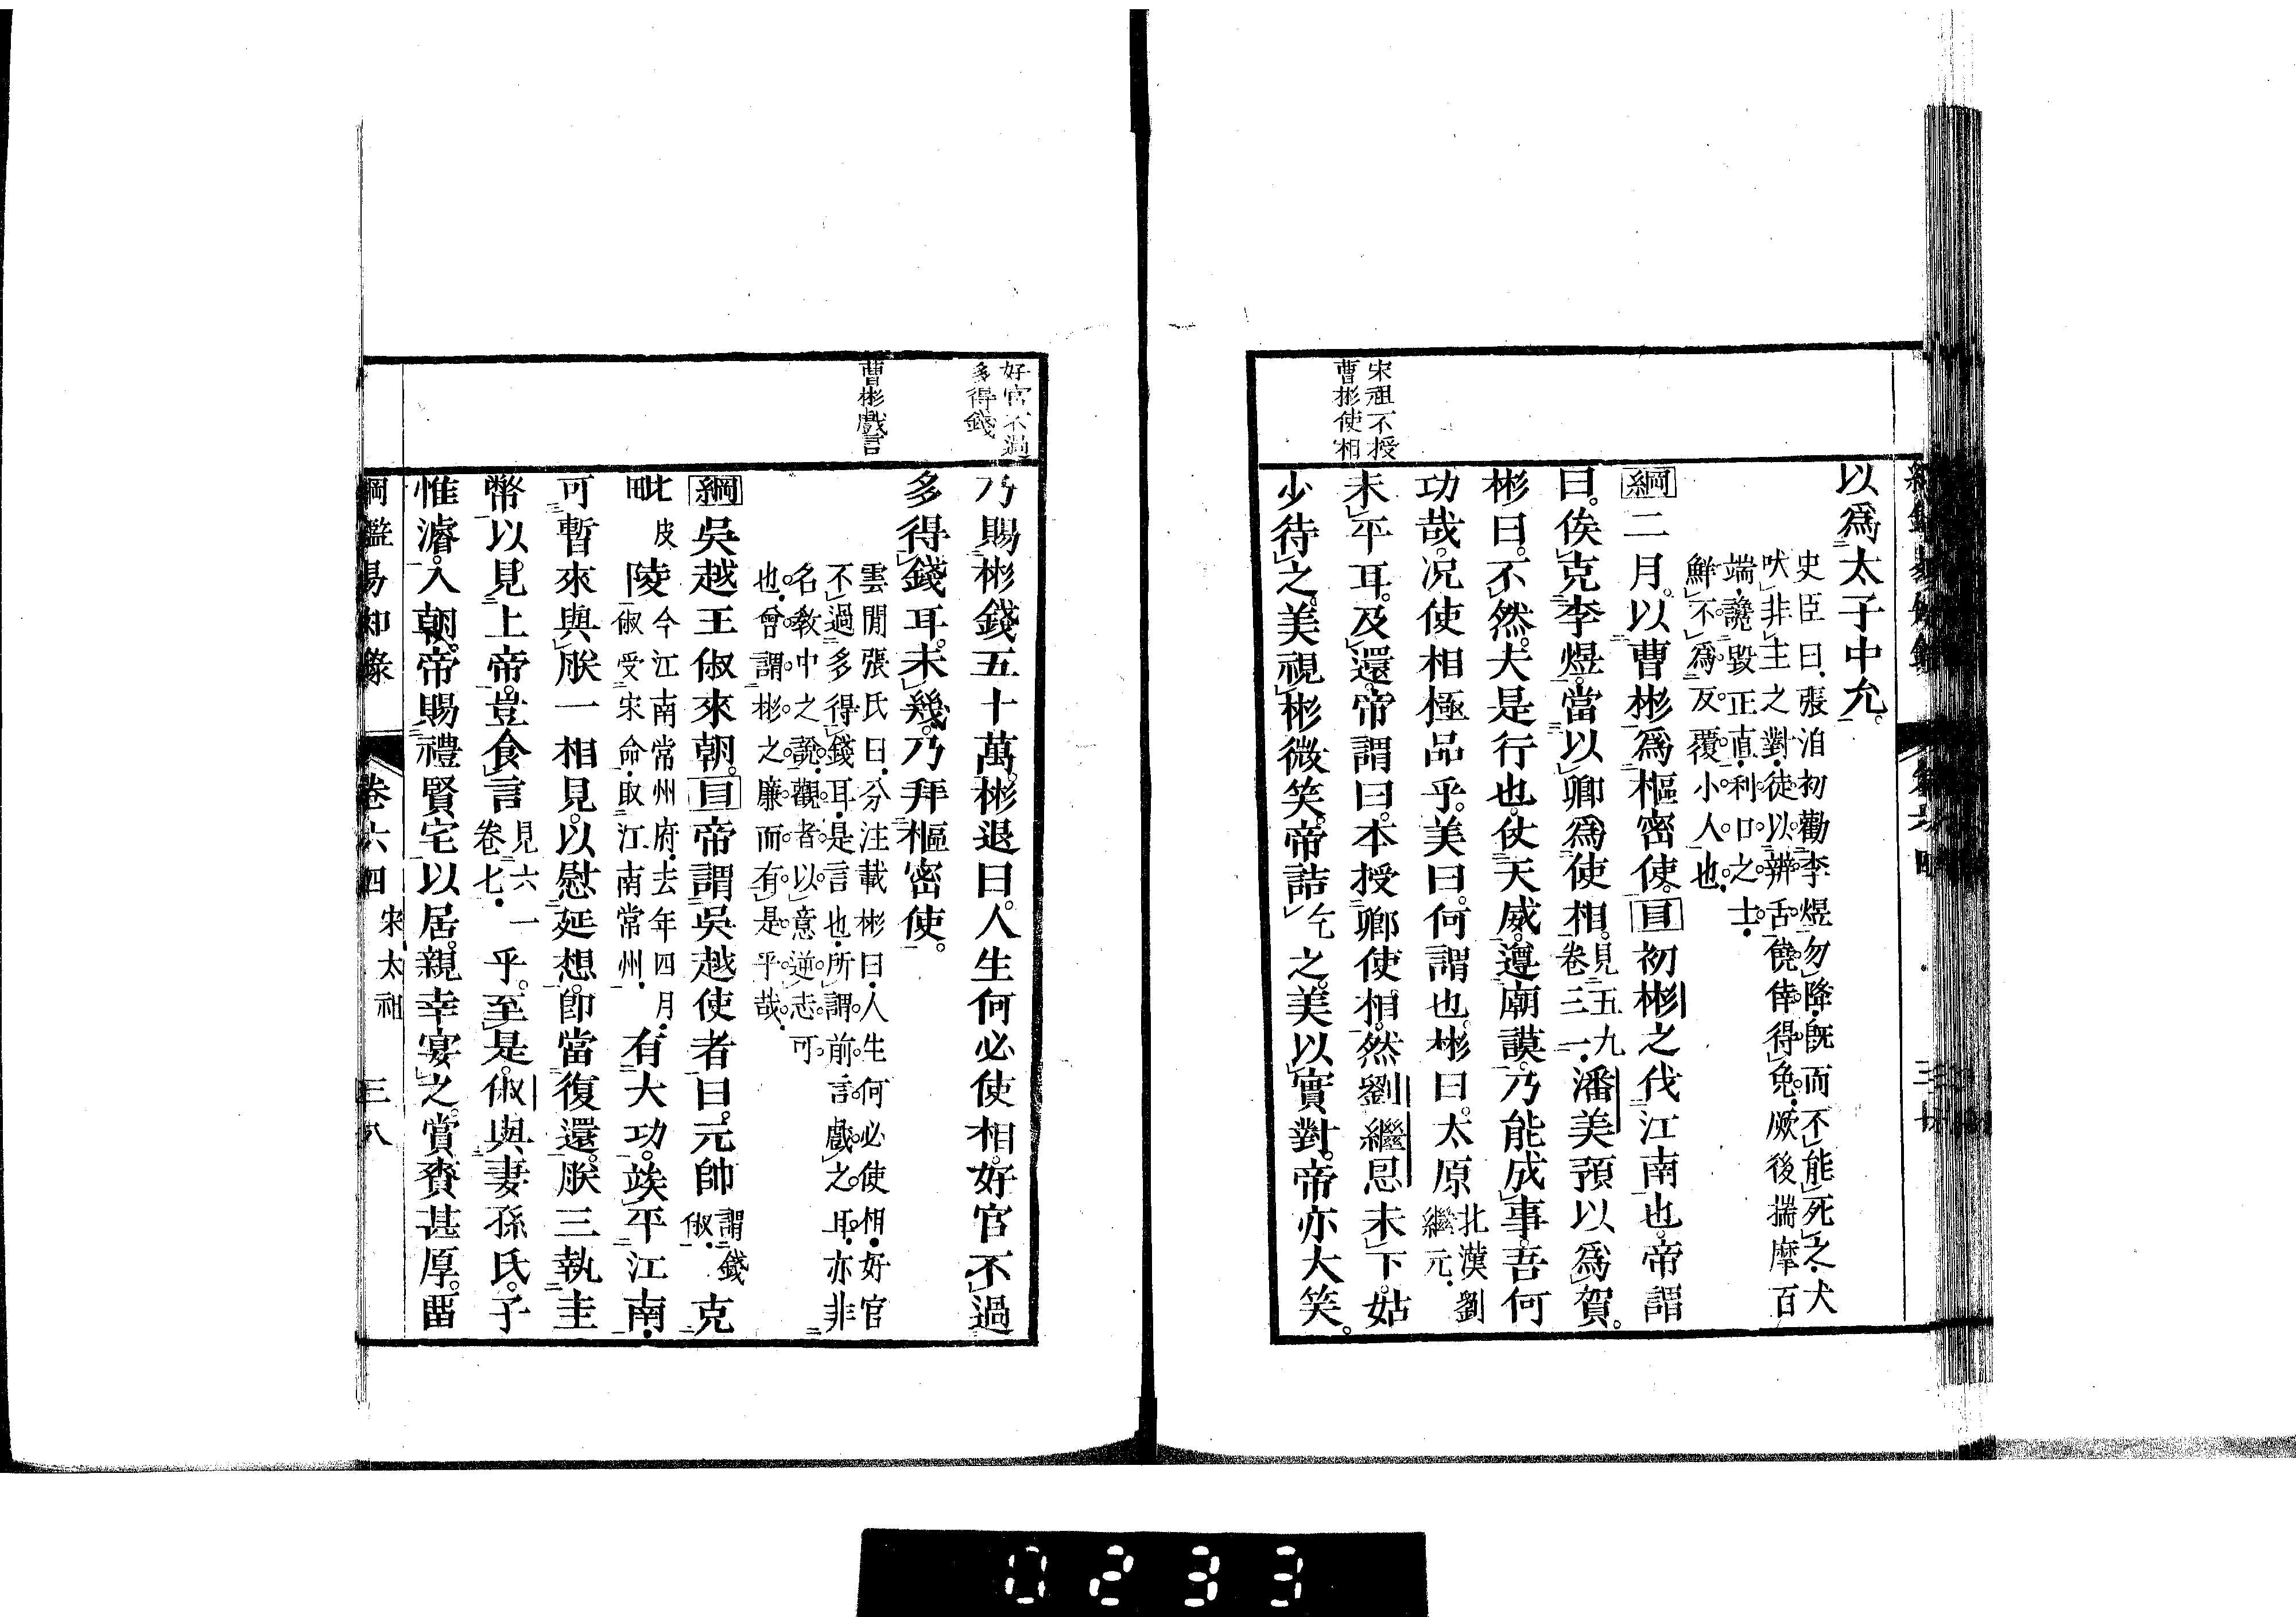 宋祖不授
曹彬使相
以爲太子中允。
史臣曰、張洎初勸李煜勿降、旣而不能死之、犬
吠非主之對、徒以辨舌僥倖得免、厥後揣摩百
端、讒毀正直、利口之士、
鮮不爲反覆小人也、
綱二月。以曹彬爲樞密使。目初彬之伐江南也。帝謂
曰。俟克李煜。當以卿爲使相。見五九卷三一、潘美預以爲賀。
彬曰。不然。夫是行也。仗天威。遵廟謨。乃能成事。吾何
功哉。况使相極品乎。美曰。何謂也。彬曰。太原北漢劉繼元、
未平耳。及還。帝謂曰。本授卿使相。然劉繼恩未下。姑
少待之。美視彬微笑。帝詰乞之。美以實對。帝亦大笑。
好官不過
多得錢
曹彬戲言
乃賜彬錢五十萬。彬退曰。人生何必使相。好官不過
多得錢耳。未幾。乃拜樞密使。
雲閒張氏曰、分注載彬曰、人生何必使相、好官
不過多得錢耳、是言也、所謂前言戲之耳、亦非
名敎中之說、觀者以意逆志可
也、曾謂彬之廉而有是乎哉、
綱吳越王俶來朝。目帝謂吳越使者曰。元帥謂錢俶、克
毗皮陵今江南常州府、去年四月、俶受宋命、取江南常州、有大功。俟平江南、
可暫來與朕一相見。以慰延想。卽當復還。朕三執圭
幣以見上帝。豈食言見六一卷七、乎。至是。俶與妻孫氏。子
惟濬。入朝。帝賜禮賢宅以居。親幸宴之。賞賚甚厚。畱
綱鑑易知錄 卷六四 宋太祖 三八
0233